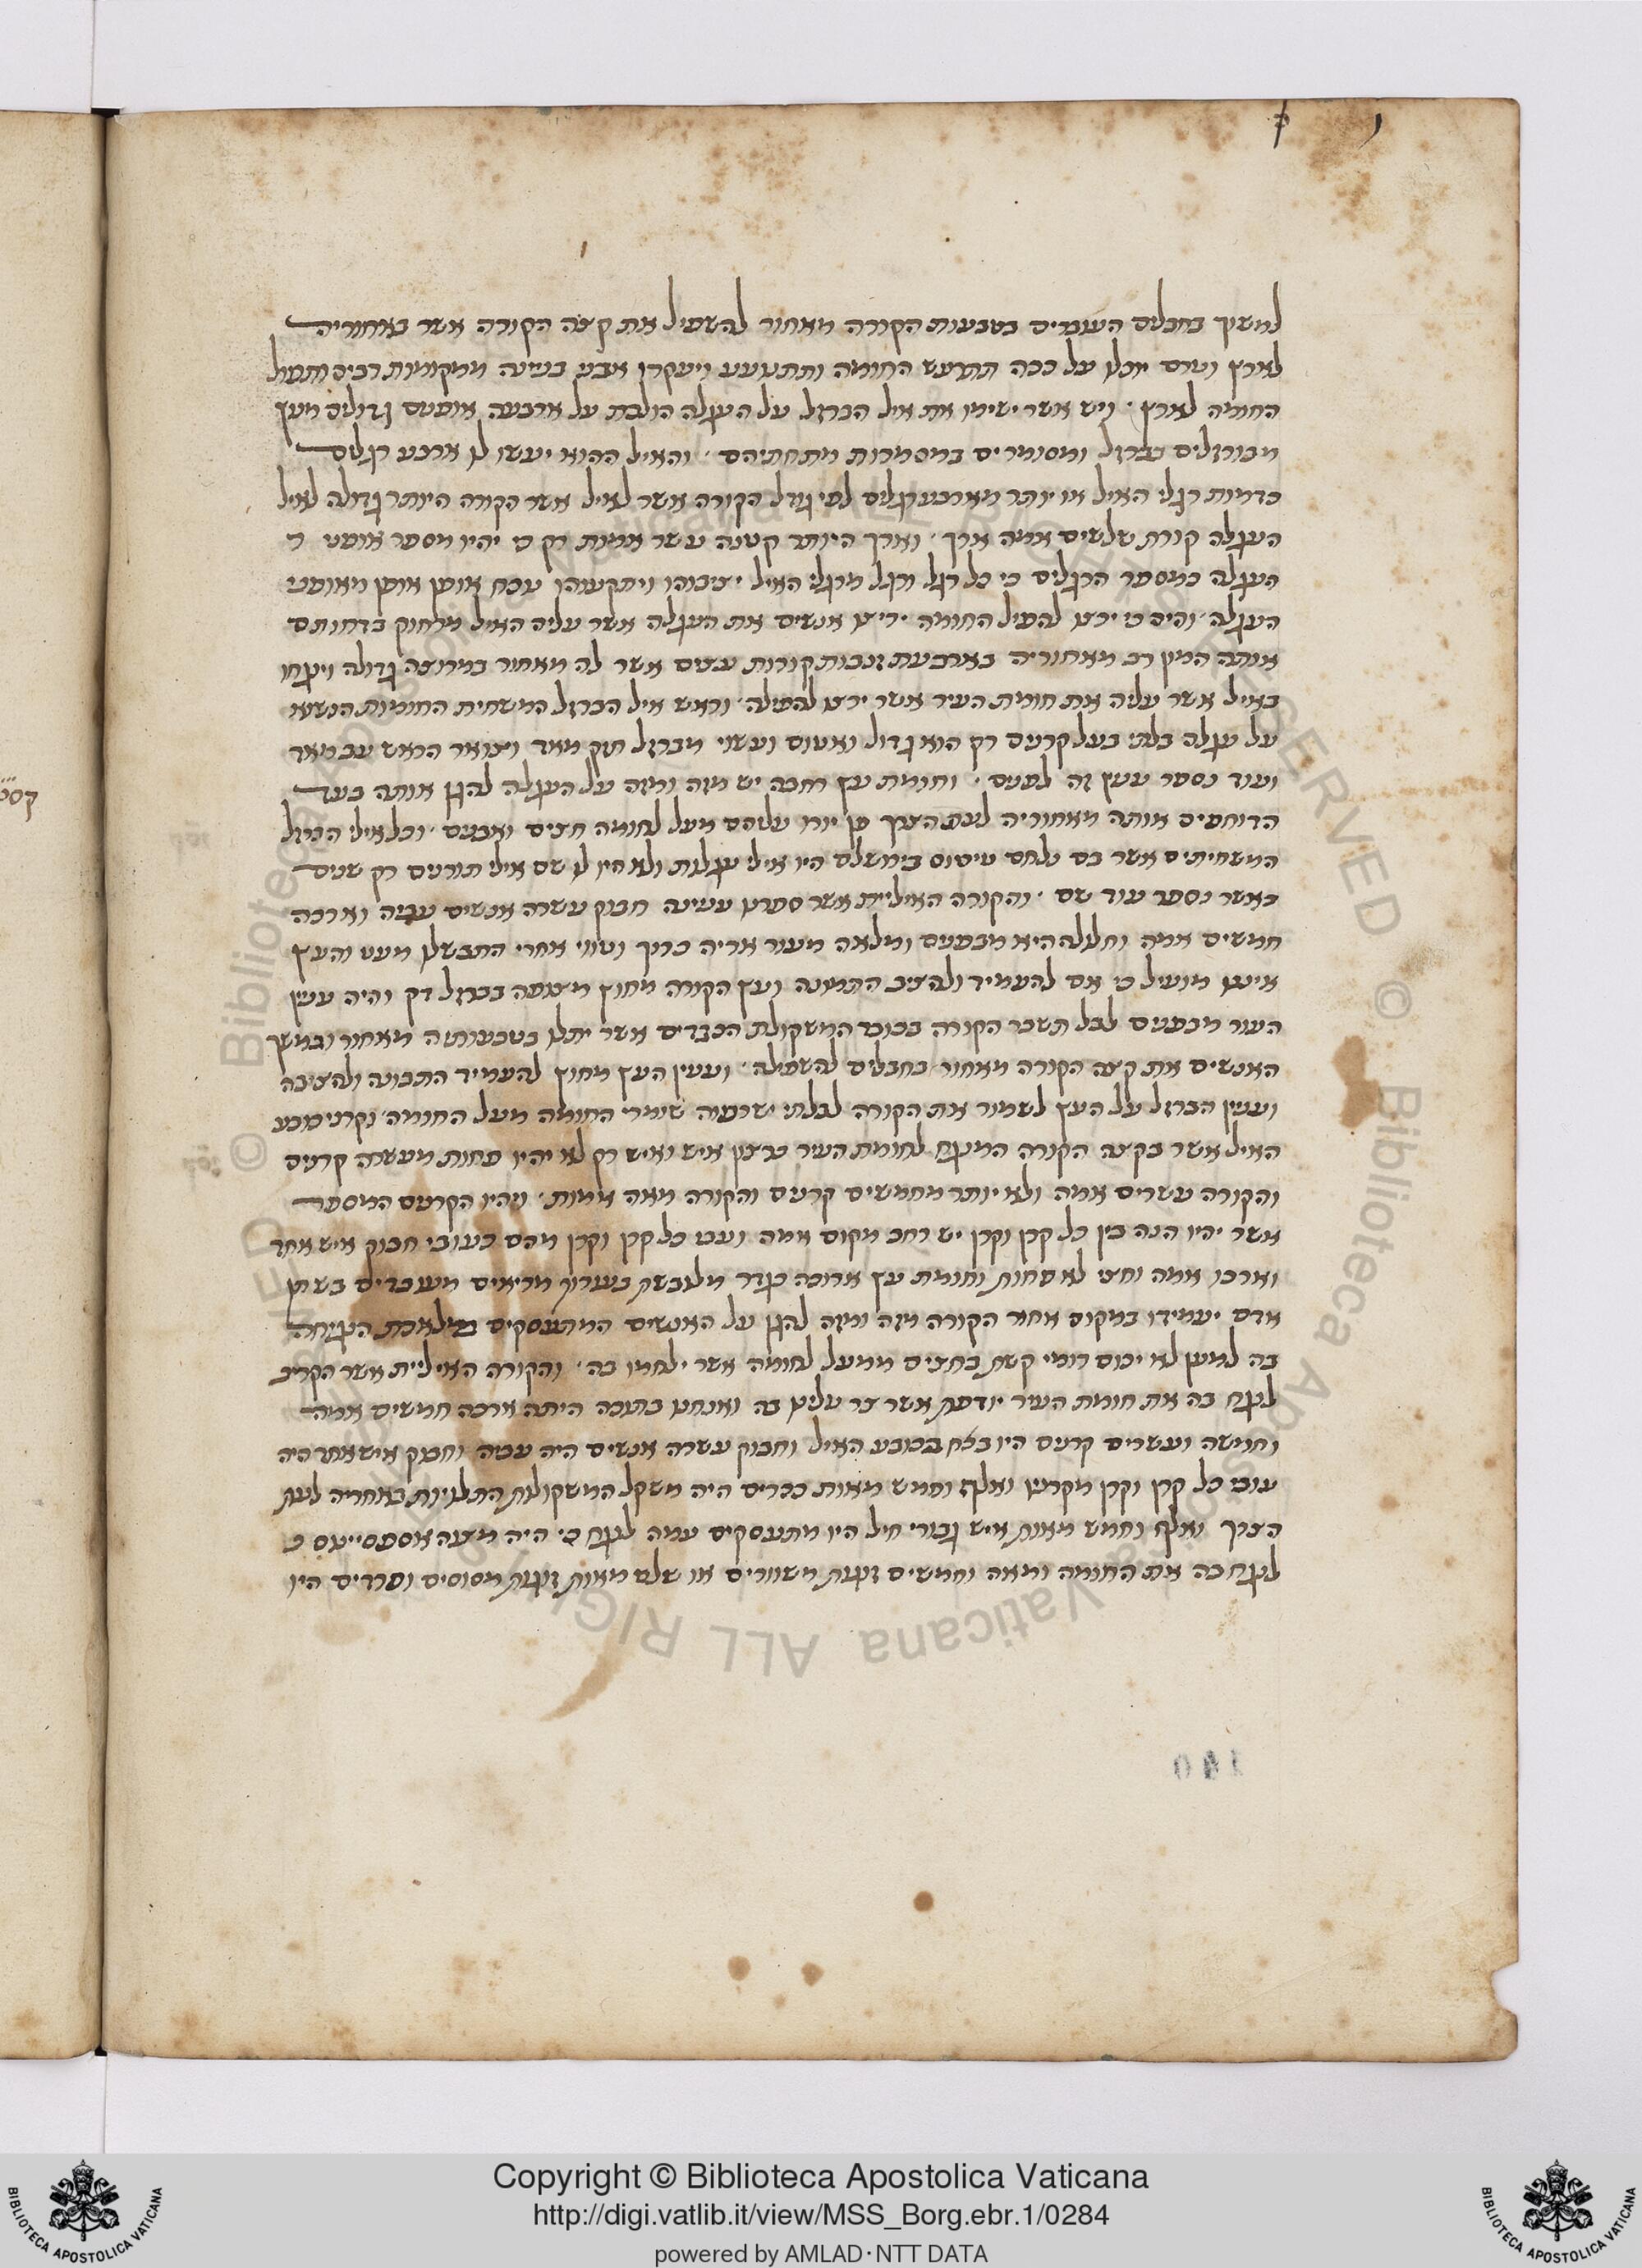 למשוך בחבלים העוברים בטבעות הקורה מאחור להשפיל את קצה הקורה אשר באחוריה
לארץ וטרם יוכלו על ככה תתרעש החומה ותתנענע ויעקרו אבני בנינה ממקומות רבים ותפול
החומה לארץ ויש אשר ישימו את איל הברזל על העגלה הולכת על ארבעה אופנים גדולים מעץ
מבורזלים בברזל ומסומרים במסמרות מתחתיהם והאיל ההוא יעשו לו ארבע רגלים
כדמות רגלי האיל או יותר מארבע רגלים לפי גודל הקורה אשר לאיל אשר הקורה היותר גדולה לאיל
העגלה קורת שלשים אמה ארך וארך היותר קטנה עשר אמות רק כי יהיו מספר אופני
העגלה כמספר הרגלים כי כל רגל ורגל מרגלי האיל יציבוהו ויתקעוהו נכח אופן אופן מאופני
העגלה והיה כי ירצו להפיל החומה יריצו אנשים את העגלה אשר עליה האיל מרחוק בדחותם
אותה המון רב מאחוריה בארבעת זנבות קורות עצים אשר לה מאחור במרוצה גדולה ויגחו
באיל אשר עליה את חומת העיר אשר ירצו להפילה וראש איל הברזל המשחית החומות הנשא
על עגלה בלתי בעל קרנים רק הוא גדול ואטום ועשוי מברזל חזק מאד וצואר הראש עב מאד
ועוד נספר ענין זה לפנים וחומת עץ רחבה יש מזה ומזה על העגלה להגן אותה בעד
הדוחפים אותה מאחוריה לעת הצרך פן יורו עליהם מעל לחומה חצים ואבנים וכל אילי הברזל
המשחיתים אשר בם נלחם טיטוס בירושלם היו אילי עגלות ולא היו לו שם אילי תורנים רק שנים
כאשר נספר עוד שם והקורה האילית אשר ספרנו ענינה חבוק עשרה אנשים עביה וארכה
חמשים אמה וחלולה היא מבפנים ומלאה מעור אריה כרוך וטווי אחרי התבשלו מעט והעץ
איננו מועיל כי אם להעמיד ולהציב התמונה ועץ הקורה מחוץ מצופה בברזל דק והיה ענין
העור מבפנים לבל תשבר הקורה בכובד המשקולות הכבדים אשר יתלו בטבעותיה מאחור ובמשך
האנשים את קצה הקורה מאחור בחבלים להשפילה וענין העץ מחוץ להעמיד התבונה ולהציבה
וענין הברזל על העץ לשמור את הקורה לבלתי ישרפוה שומרי החומה מעל החומה וקרני כובע
האיל אשר בקצה הקורה המנגח לחומת העיר כרצון איש ואיש רק לא יהיו פחות מעשרה קרנים
והקורה עשרים אמה ולא יותר מחמשים קרנים והקורה מאה אמות ויהיו הקרנים המספר
אשר יהיו הנה בין כל קרן וקרן יש רחב מקום אמה ועבי כל קרן וקרן מהם כעובי חבוק איש אחד
וארכו אמה וחצי לא פחות וחומת עץ ארוכה כגדר מלובשת בעורות מריאים מעובדים בשמן
אדם יעמידו במקום אחור הקורה מזה ומזה להגן על האנשים המתעסקים במלאכת הנגיחה
בה למען לא יכום רומי קשת בחצים ממעל לחומה אשר ילחמו בה והקורה האילית אשר הקריב
לנגח בה את חומת העיר יודפת אשר צר עלינו בה ואנחנו בתוכה היתה ארכה חמשים אמה
וחמשה ועשרים קרנים היו בלוח בכובע האיל וחבוק עשרה אנשים היה עביה וחבוק איש אחד היה
עובי כל קרן וקרן מקרניו ואלף וחמש מאות ככרים היה משקל המשקולות התלויות באחריה לעת
הצרך ואלף וחמש מאות איש גבורי חיל היו מתעסקים עמה לנגח כי היה מצוה אספסיינוס
לנגח בה את החומה ומאה וחמשים זוגות משוורים או שלש מאות זוגות מסוסים ופרדים היו
140
Copyright © Biblioteca Apostolica Vaticana
http://digi.vatlib.it/view/MSS_Borg.ebr.1/0284
powered by AMLAD·NTT DATA